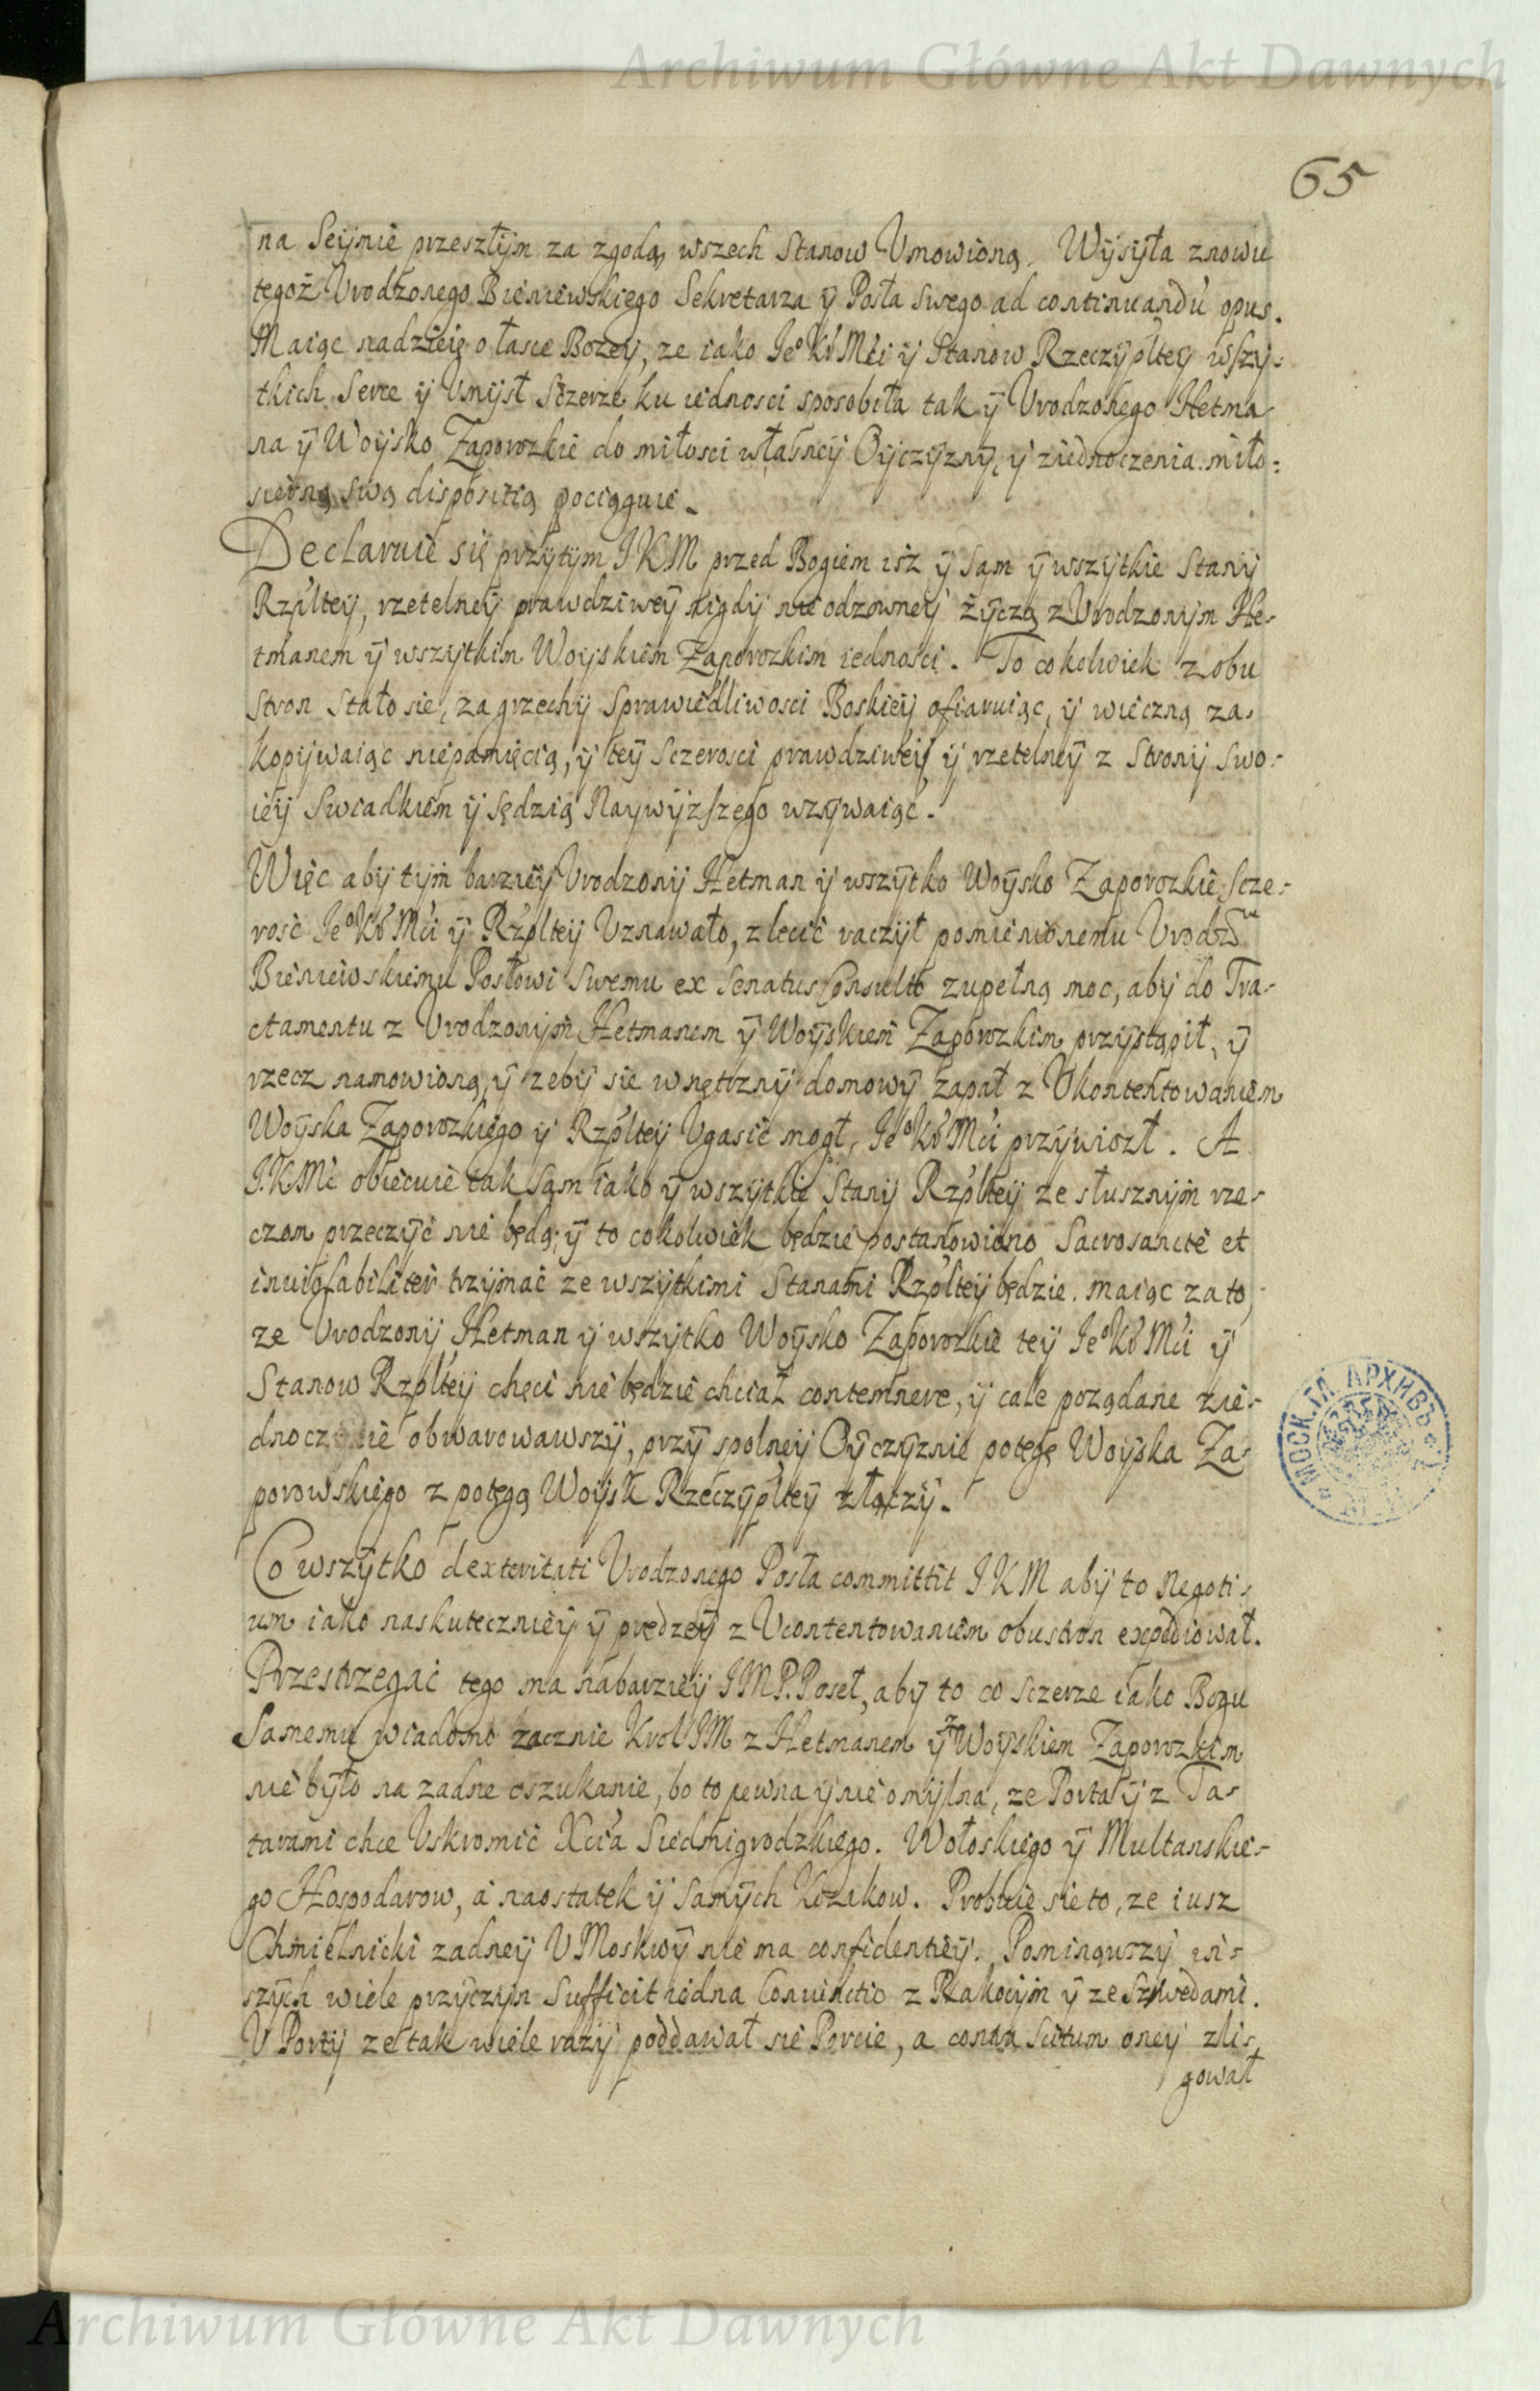 Archiwum Główne Akt Dawnych
65
na Seijmie przeszłym za zgodą wszech Stanow Vmowioną. Wysyła znowu
tegoż Vrodzonego Bieniewskiego Sekretarza ÿ Posła swego ad continuandũ opus.
Maiąc nadzieię o łasce Bozeÿ, ze iako Ieº Kº Mći ÿ Stanow Rzeczÿpltey wszÿ-
tkich Serce ÿ Vmÿsł Sczerze ku iednosci sposobiła tak ÿ Vrodzonego Hetma-
na ÿ Woÿsko Zaporozkie do miłosci własneÿ Oÿczÿznÿ, ÿ ziednoczenia miło:
sierną swą dispositią pociągnie.
Declaruie się przÿtÿm IKM przed Bogiem isz ÿ sam ÿ wszÿtkie Stanÿ
Rzpltey, rzetelneÿ prawdziweÿ nigdÿ nieodzowneÿ życzą z Vrodzonÿm He-
tmanem ÿ wszÿtkim Woÿskiem Zaporozkim iednosci. To cokolwiek z obu
stron stało sie, za grzechÿ Sprawiedliwosci Boskieÿ ofiaruiąc, ÿ wieczną za-
kopÿwaiąc niepamięcią, ÿ teÿ sczerosci prawdziweÿ ÿ rzetelneÿ z stronÿ swo-
ieÿ Swiadkiem ÿ sędzią Naywÿzszego wzÿwaiąc.
Więc abÿ tÿm barzieÿ Vrodzonÿ Hetman ÿ wszÿtko Woÿsko Zaporozkie Scze-
rosc Ieº Kº Mći ÿ Rzplteÿ Vznawało, zlecić raczÿł pomienionemu Vrodzᵘ
Bieniewskiemu Posłowi Swemu ex Senatus Consulto zupełną moc, abÿ do Tra-
ctamentu z Vrodzonÿm Hetmanem ÿ Woÿskiem Zaporozkim przÿstąpił, ÿ
rzecz namowioną, ÿ zebÿ sie wnętrznÿ domowÿ zapał z Vkontentowaniem
Woÿska Zaporozkiego ÿ Rzplteÿ Vgasić mogł, Ieº Kº Mći przÿwiozł. A
I.K.Mć obiecuie tak sam iako ÿ wszÿtkie Stanÿ Rzplteÿ ze słusznÿm rze-
czom przeczÿć nie będą; ÿ to cokolwiek będzie postanowiono Sacrosancte et
inviolabiliter trzÿmać ze wszÿtkimi Stanami Rzplteÿ będzie. maiąc za to,
ze Vrodzonÿ Hetman ÿ wszÿtko Woÿsko Zaporozkie teÿ Ieº Kº Mći ÿ
Stanow Rzplteÿ chęci nie będzie chciał contemnere, ÿ cale poządane zie-
dnoczenie obwarowawszÿ, przÿ spolneÿ Oÿczÿznie potęgę Woÿska Za-
porowskiego z potęgą Woÿsk Rzeczÿplteÿ złączÿ.
Co wszÿtko dexteritati Vrodzonego Posła committit IKM abÿ to negoti-
um iako naskutecznieÿ ÿ prędzeÿ z Vcontentowaniem obustron expediował.
Przestrzegać tego ma nabarzieÿ IMP. Poseł, abÿ to co sczerze iako Bogu
Samemu wiadomo zacznie Krol IM z Hetmanem ÿ z Woÿskiem Zaporozkim
nie bÿło na zadne oszukanie, bo to pewna ÿ nieomÿlna, ze Porta ÿ z Ta-
tarami chce Vskromić Xcia Siedmigrodzkiego. Wołoskiego ÿ Multanskie-
go Hospodarow, a naostatek ÿ samÿch Kozakow. Probuie sie to, ze iusz
Chmielnicki zadneÿ V Moskwÿ nie ma confidentieÿ. Pominąwszÿ in-
szÿch wiele przÿczÿn sufficit iedna Coniunctio z Rakocÿm ÿ ze Szwedami.
V Portÿ ze tak wiele razÿ poddawał sie Porcie, a contra scitum oneÿ zli-
gował
МОСК. ГЛ. АРХИВЪ
Archiwum Główne Akt Dawnych